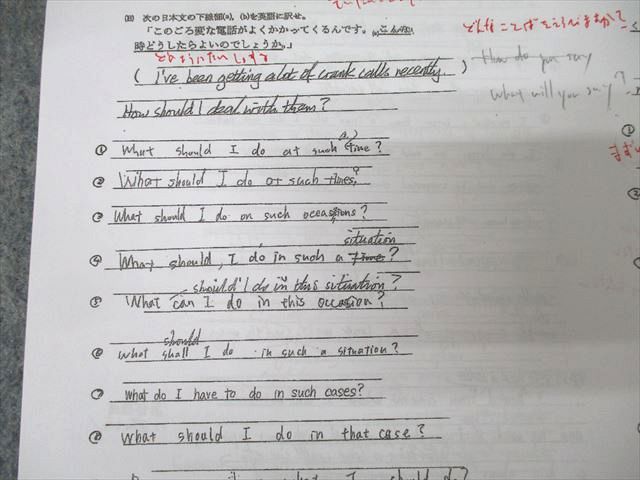 (B) 次の日本文の下線部(a)、(b)を英語に訳せ。
「このごろ変な電話がよくかかってくるんです。(a)こんな
時どうしたらよいのでしょうか。」
(I've been getting a lot of crank calls recently.)
How should I deal with them?
How do you say
What will you say?
① What should I do at such (a) time?
② What should I do at such times?
③ What should I do on such occasions?
situation
④ What should I do in such a time?
should I do in this situation?
⑤ What can I do in this occasion?
should
⑥ What shall I do in such a situation?
⑦ What do I have to do in such cases?
⑧ What should I do in that case?
I should do?